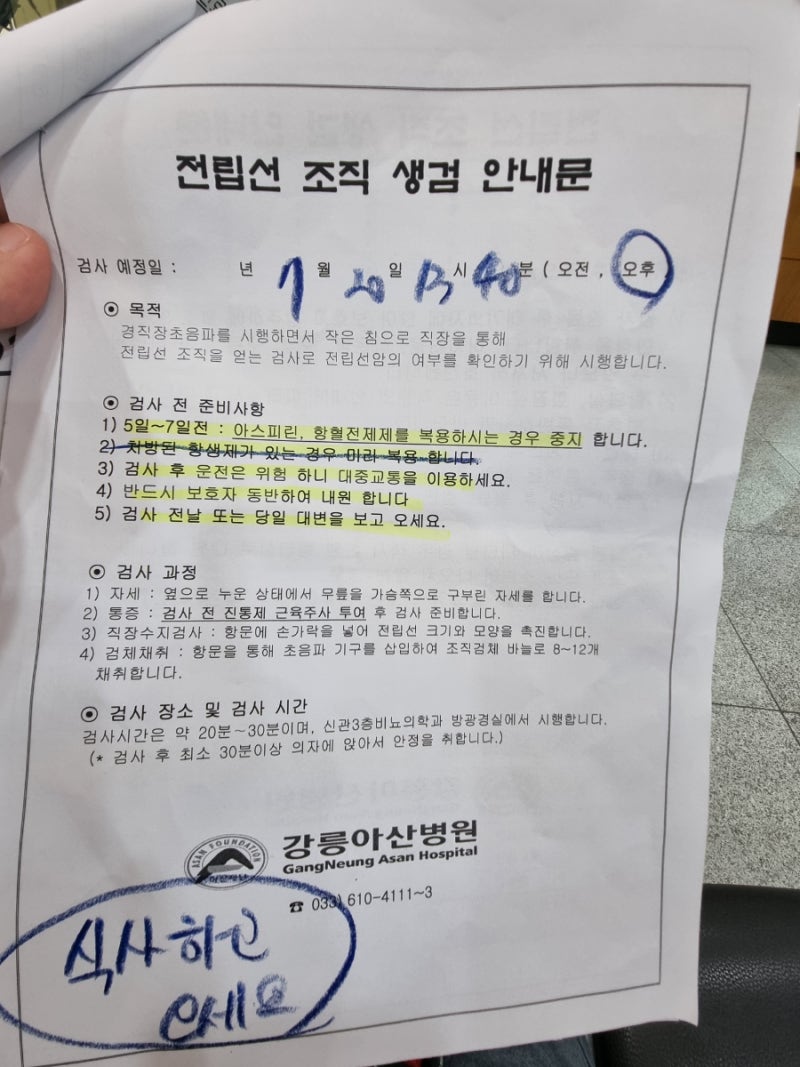 전립선 조직 생검 안내문
검사 예정일 : 년 7 월 20 일 13 시 40 분 ( 오전 , 오후 )
⊙ 목적
경직장초음파를 시행하면서 작은 침으로 직장을 통해
전립선 조직을 얻는 검사로 전립선암의 여부를 확인하기 위해 시행합니다.
⊙ 검사 전 준비사항
1) 5일~7일전 : 아스피린, 항혈전제제를 복용하시는 경우 중지 합니다.
2) 처방된 항생제가 있는 경우 미리 복용 합니다.
3) 검사 후 운전은 위험 하니 대중교통을 이용하세요.
4) 반드시 보호자 동반하여 내원 합니다
5) 검사 전날 또는 당일 대변을 보고 오세요.
⊙ 검사 과정
1) 자세 : 옆으로 누운 상태에서 무릎을 가슴쪽으로 구부린 자세를 합니다.
2) 통증 : 검사 전 진통제 근육주사 투여 후 검사 준비합니다.
3) 직장수지검사 : 항문에 손가락을 넣어 전립선 크기와 모양을 촉진합니다.
4) 검체채취 : 항문을 통해 초음파 기구를 삽입하여 조직검체 바늘로 8~12개
채취합니다.
⊙ 검사 장소 및 검사 시간
검사시간은 약 20분~30분이며, 신관3층비뇨의학과 방광경실에서 시행합니다.
(* 검사 후 최소 30분이상 의자에 앉아서 안정을 취합니다.)
ASAN FOUNDATION
아산재단
강릉아산병원
GangNeung Asan Hospital
☎ 033) 610-4111~3
식사하고
오세요